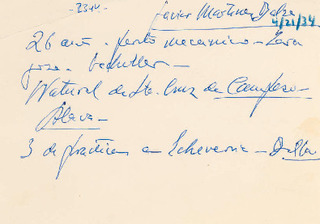 -23 M-
Javier Martinez
4/21/34
26 años - perito mecanico - Zara
goza - bachiller -
Natural de Sta. Cruz de Campezo -
Alava -
3 de practicas en Echeverria -